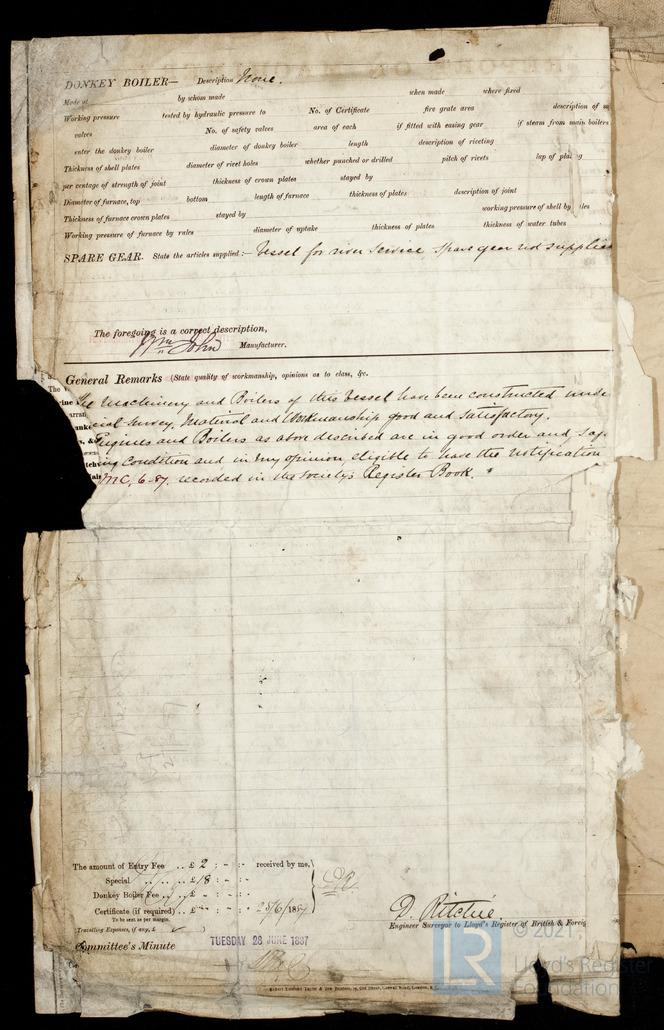 DONKEY BOILER— Description None.
Made at by whom made when made where fixed
Working pressure tested by hydraulic pressure to No. of Certificate fire grate area description of
valves No. of safety valves area of each if fitted with easing gear if steam from main boilers
enter the donkey boiler diameter of donkey boiler length description of riveting
Thickness of shell plates diameter of rivet holes whether punched or drilled pitch of rivets lap of plating
per centage of strength of joint thickness of crown plates stayed by
Diameter of furnace, top bottom length of furnace thickness of plates description of joint
Thickness of furnace crown plates stayed by working pressure of shell by
Working pressure of furnace by rules diameter of uptake thickness of plates thickness of water tubes
SPARE GEAR. State the articles supplied:— Vessel for river service spare gear not supplied
The foregoing is a correct description,
Wm John Manufacturer.
General Remarks (State quality of workmanship, opinions as to class, &c.
The Machinery and Boilers of this Vessel have been constructed unde
cial Survey, Material and Workmanship good and satisfactory.
Engines and Boilers as above described are in good order and saf
ing condition and in my opinion eligible to have the notification
MC, 6-87. recorded in the Society's Register Book.
The amount of Entry Fee .. £ 2 : - : - received by me,
Special .. £18 : - : -
Donkey Boiler Fee .. £ - : - : -
Certificate (if required) .. £ - : - : - 25/6/1887
To be sent as per margin.
Travelling Expenses, if any, £
D. Ritchie.
Engineer Surveyor to Lloyd's Register of British & Foreig
Committee's Minute
TUESDAY 28 JUNE 1887
© 2021
LR Lloyd's Register
Foundation